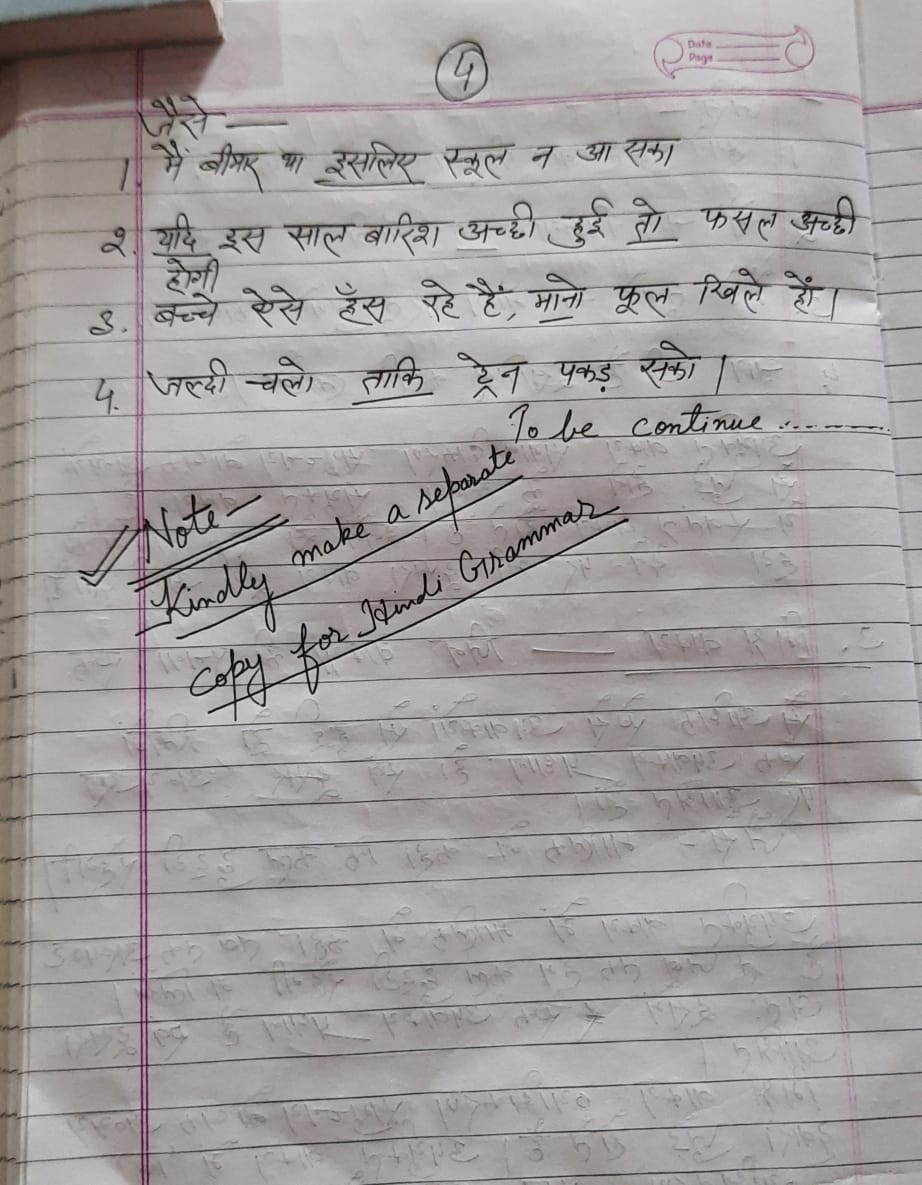 4
Date
Page
जैसे —
1. मैं बीमार था इसलिए स्कूल न आ सका
2. यदि इस साल बारिश अच्छी हुई तो फसल अच्छी
होगी
3. बच्चे ऐसे हँस रहे हैं, मानो फूल खिले हों।
4. जल्दी चलो ताकि ट्रेन पकड़ सको।
To be continue ..........
Note -
Kindly make a separate
copy for Hindi Grammar